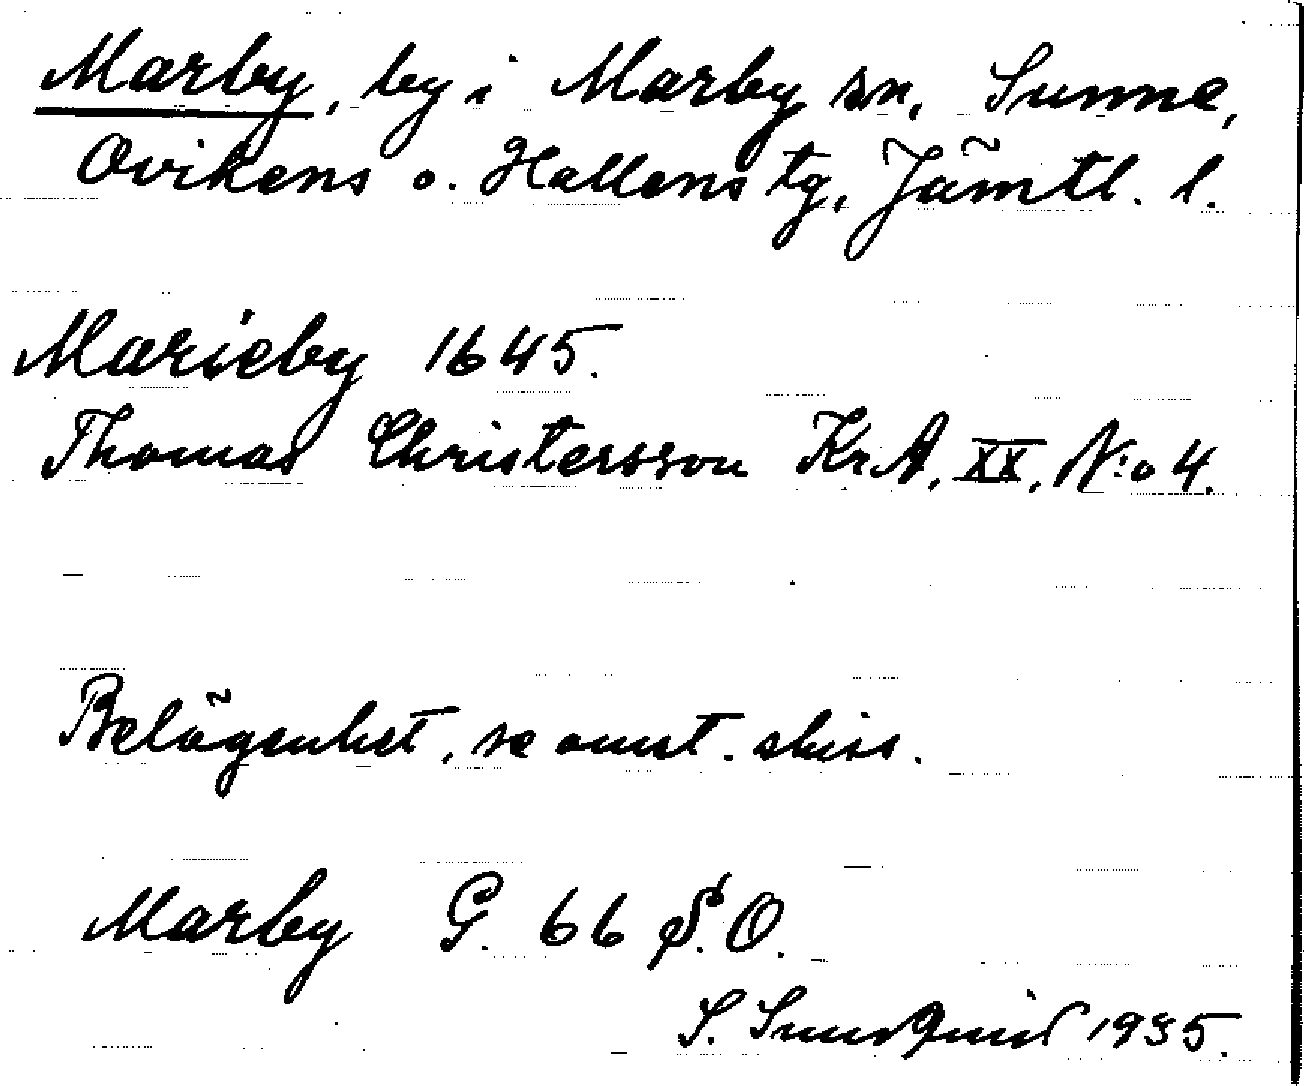 Marby, by i Marby sn, Sunne,
Ovikens o. Hallens tg, Jämtl. l.
Marieby 1645.
Thomas Christersson Kr.A. XX, N:o 4.
Belägenhet, se omst. skiss.
Marby G. 66 S.O.
S. Sundqvist 1935.